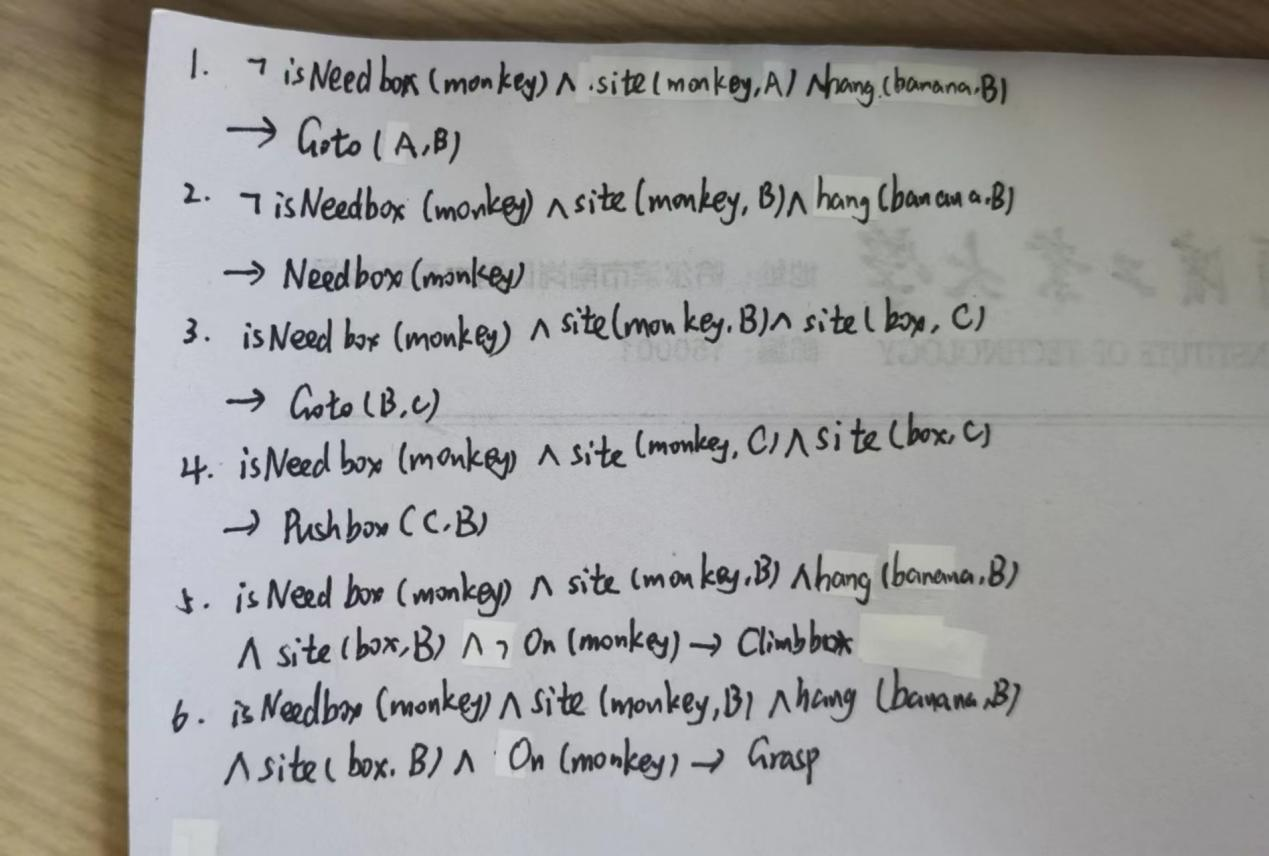 1. ¬ isNeedbox (monkey) ∧ .site (monkey, A) ∧ hang. (banana, B)
→ Goto ( A, B)
2. ¬ isNeedbox (monkey) ∧ site (monkey, B) ∧ hang (banana, B)
→ Needbox (monkey)
3. isNeed box (monkey) ∧ site (monkey, B) ∧ site ( box, C)
→ Goto (B, C)
4. isNeed box (monkey) ∧ site (monkey, C) ∧ site (box, C)
→ Pushbox (C, B)
5. isNeed box (monkey) ∧ site (monkey, B) ∧ hang (banana, B)
∧ site (box, B) ∧ ¬ On (monkey) → Climbbox
6. isNeedbox (monkey) ∧ site (monkey, B) ∧ hang (banana, B)
∧ site ( box, B) ∧ On (monkey) → Grasp